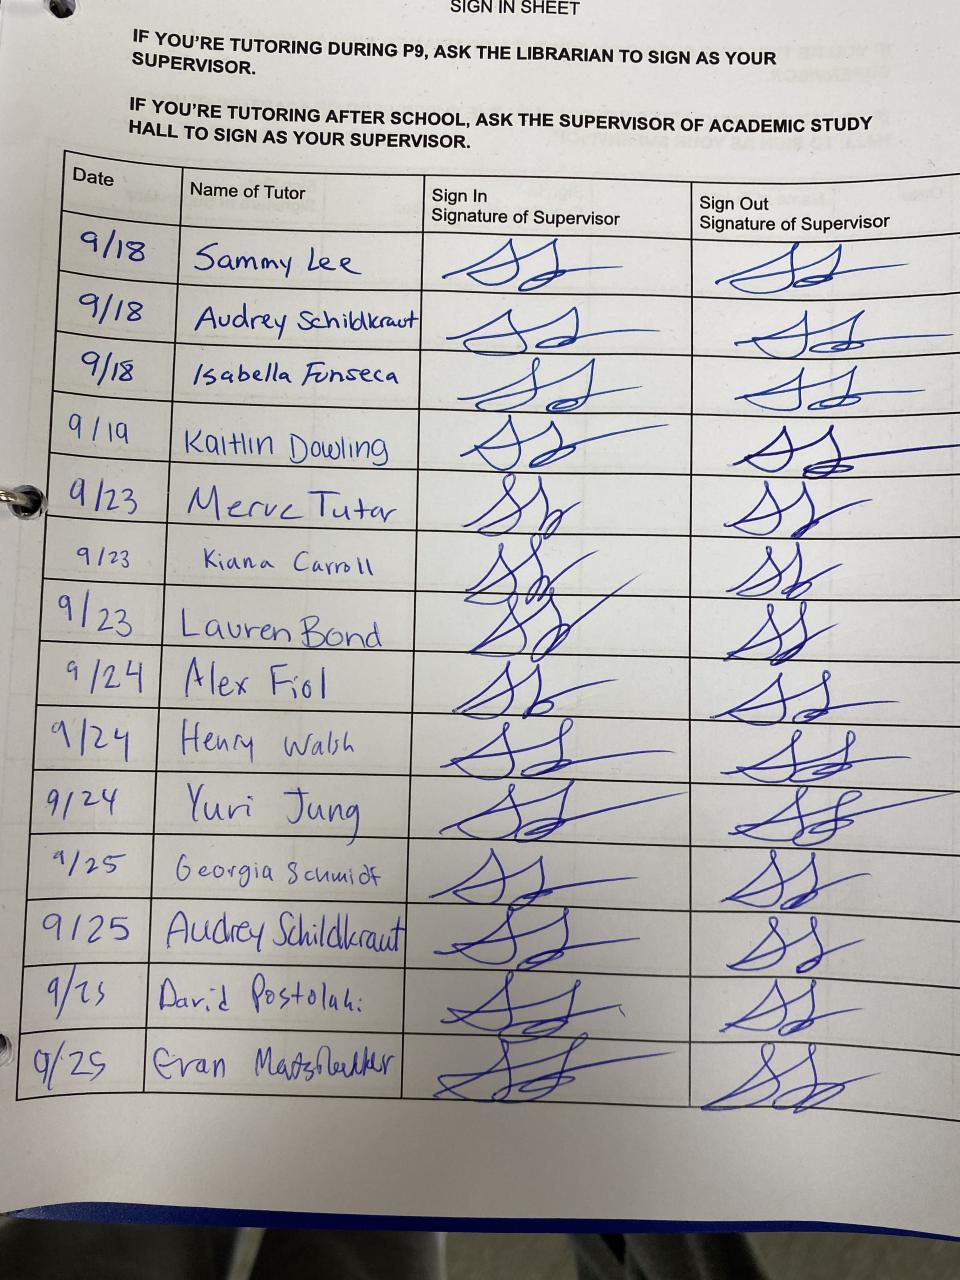 SIGN IN SHEET
IF YOU'RE TUTORING DURING P9, ASK THE LIBRARIAN TO SIGN AS YOUR
SUPERVISOR.
IF YOU'RE TUTORING AFTER SCHOOL, ASK THE SUPERVISOR OF ACADEMIC STUDY
HALL TO SIGN AS YOUR SUPERVISOR.
Date Name of Tutor Sign In Signature of Supervisor Sign Out Signature of Supervisor
9/18 Sammy Lee
9/18 Audrey Schildkraut
9/18 Isabella Fonseca
9/19 Kaitlin Dowling
9/23 Merve Tutar
9/23 Kiana Carroll
9/23 Lauren Bond
9/24 Alex Fiol
9/24 Henry Walsh
9/24 Yuri Jung
9/25 Georgia Schmidt
9/25 Audrey Schildkraut
9/25 David Postolahi
9/25 Evan